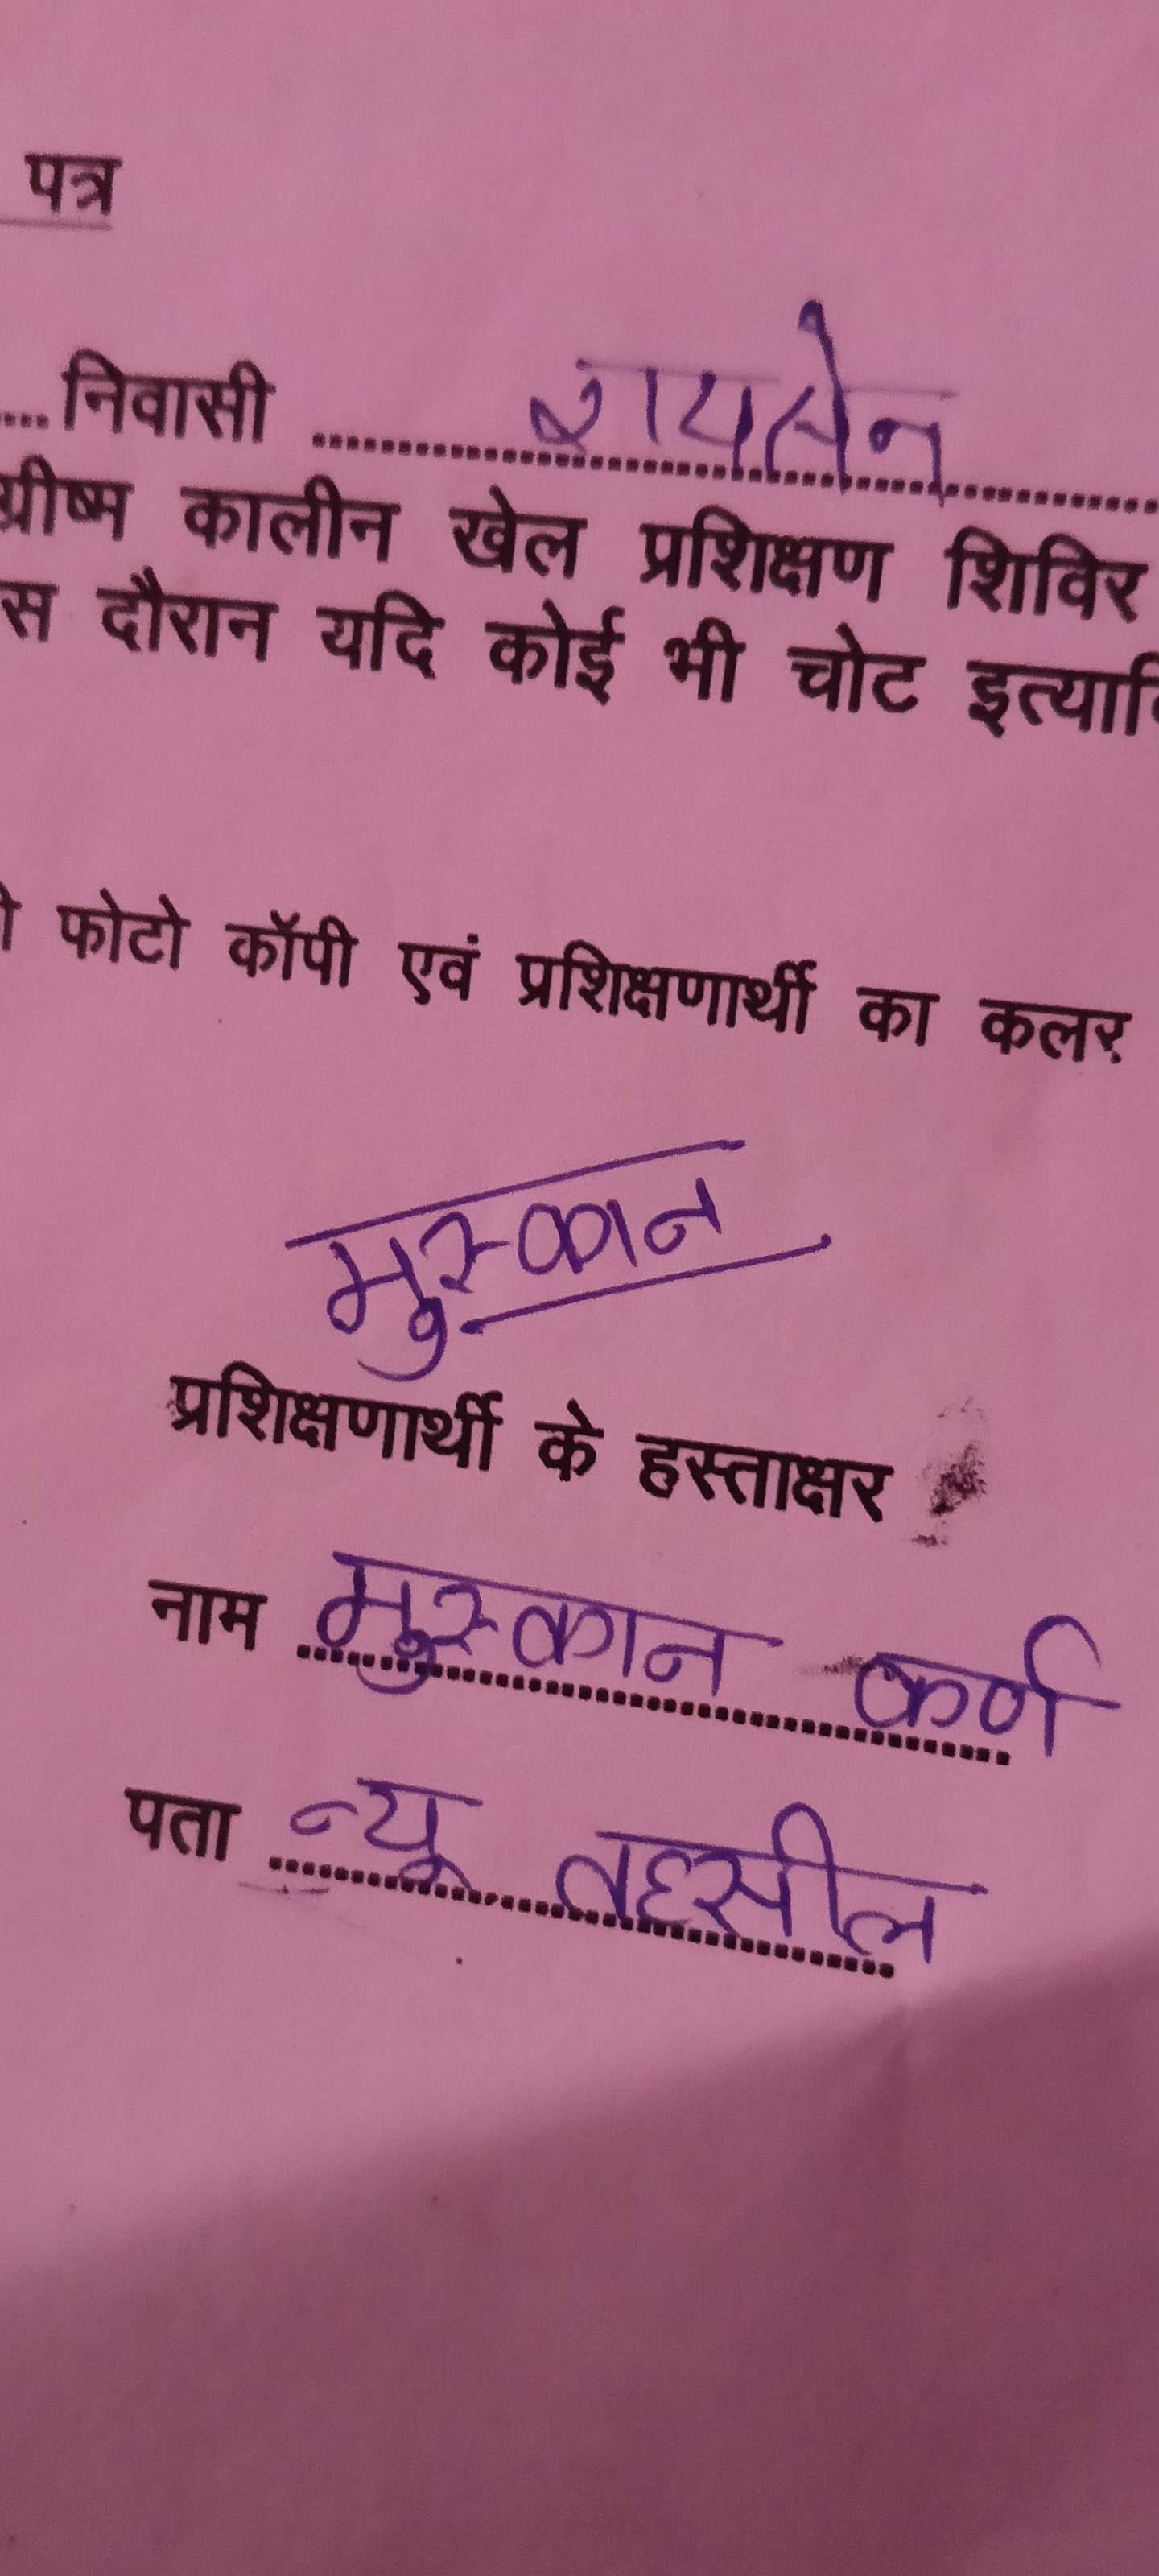 पत्र
....निवासी ......रायसेन......
ग्रीष्म कालीन खेल प्रशिक्षण शिविर
स दौरान यदि कोई भी चोट इत्यादि
फोटो कॉपी एवं प्रशिक्षणार्थी का कलर
मुस्कान
प्रशिक्षणार्थी के हस्ताक्षर
नाम मुस्कान कर्ण
पता न्यू तहसील